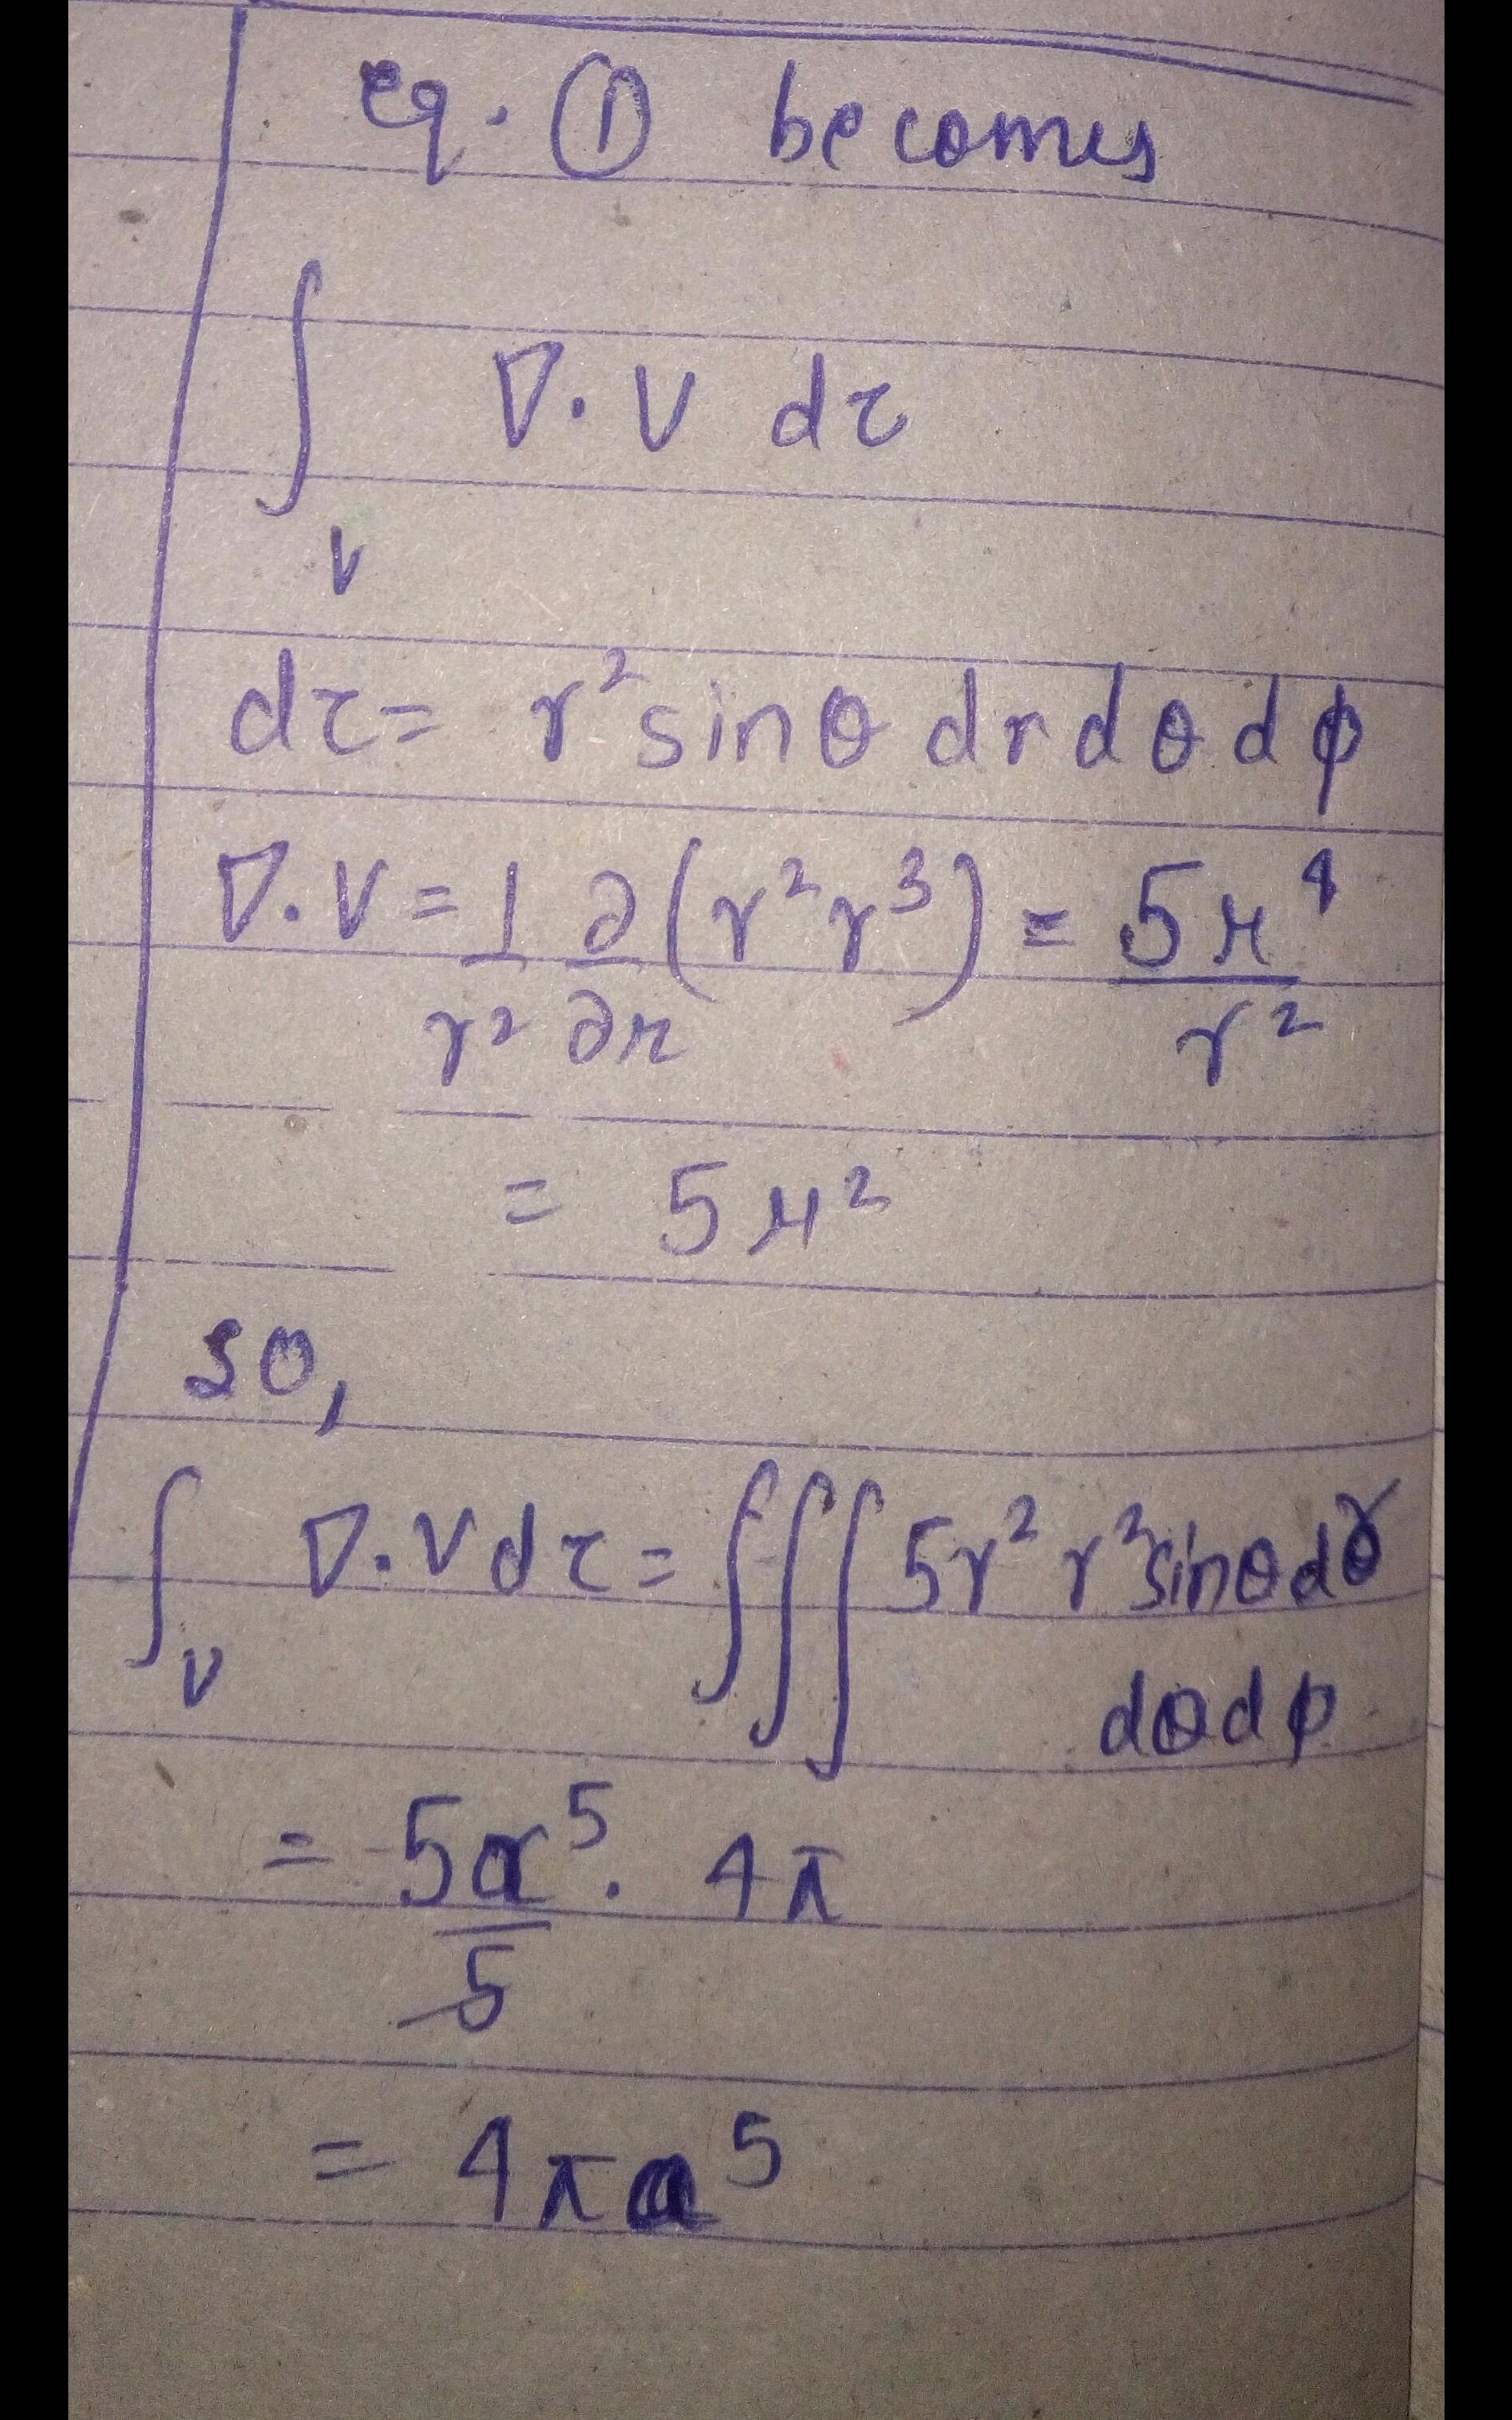 eq. ① becomes
∫ᵥ ∇.V dτ
dτ = r² sinθ dr dθ dφ
∇.V = 1/r² ∂/∂r (r² r³) = 5r⁴/r²
= 5r²
so,
∫ᵥ ∇.V dτ = ∫∫∫ 5r² r² sinθ dr
dθ dφ
= 5a⁵/5 . 4π
= 4πa⁵